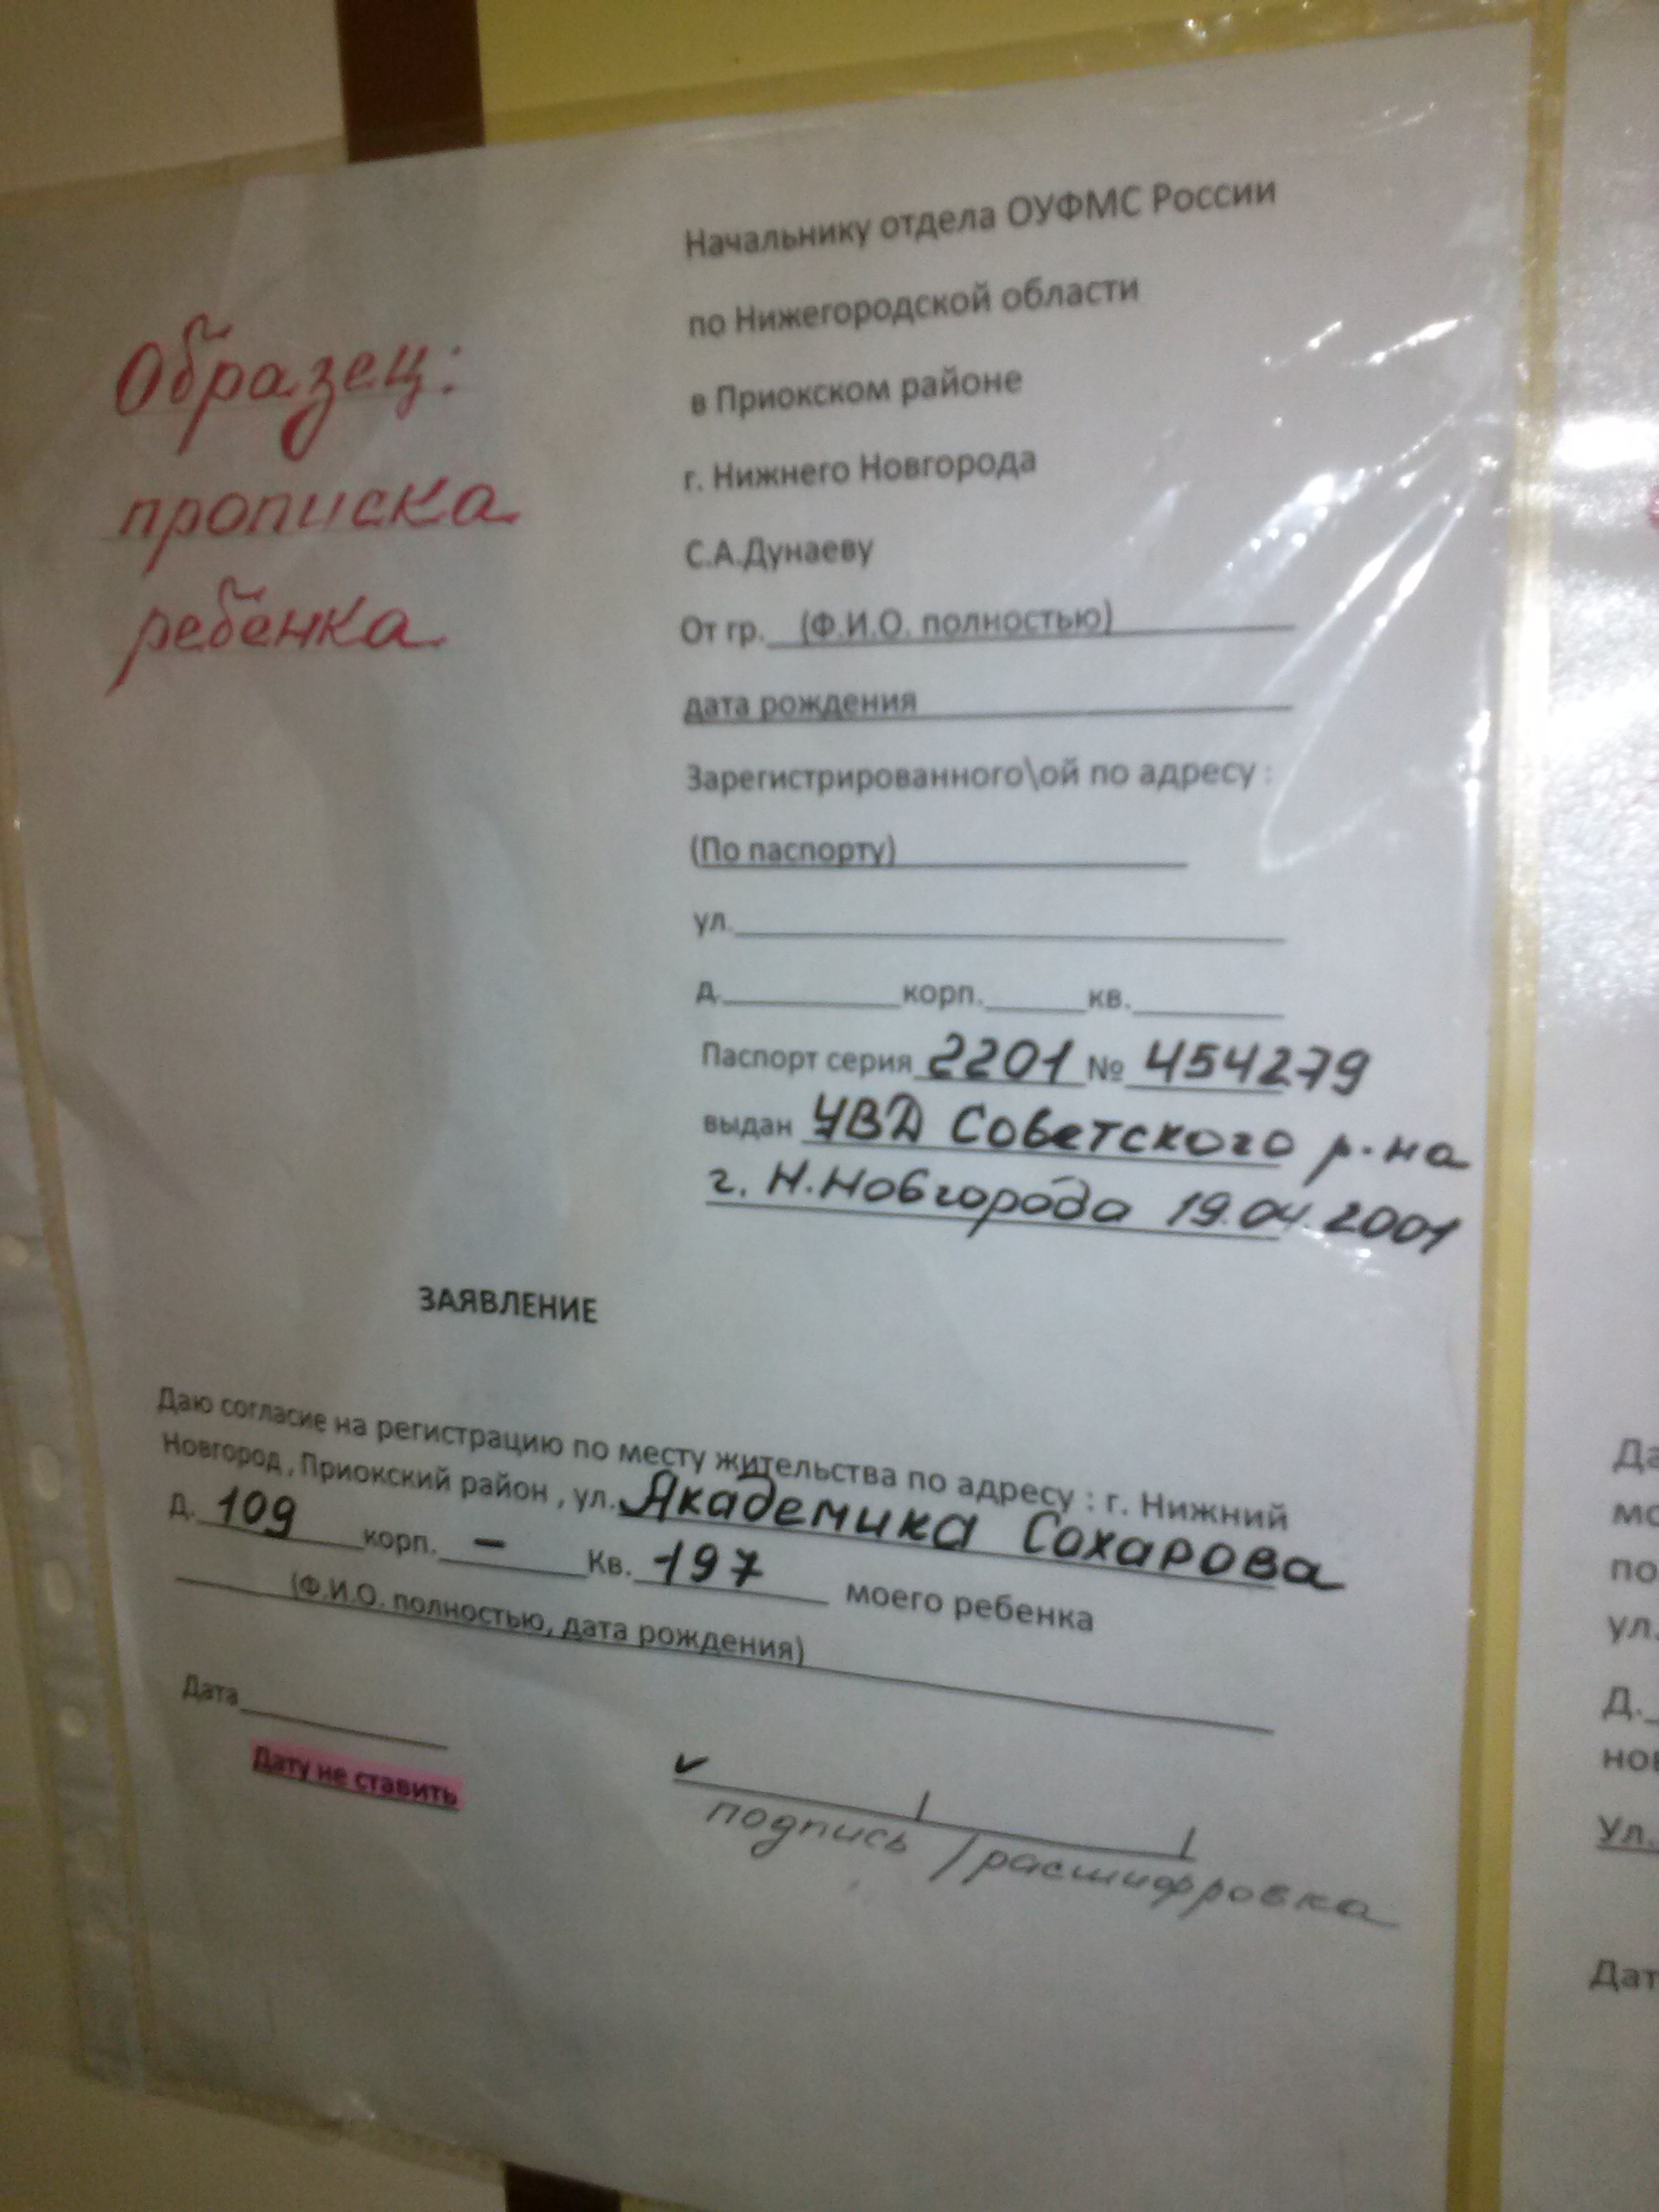 Образец:
прописка
ребенка
Начальнику отдела ОУФМС России
по Нижегородской области
в Приокском районе
г. Нижнего Новгорода
С.А.Дунаеву
От гр. (Ф.И.О. полностью)
дата рождения
Зарегистрированного\ой по адресу :
(По паспорту)
ул.
д. корп. кв.
Паспорт серия 2201 № 454279
выдан УВД Советского р-на
г. Н.Новгорода 19.04.2001
ЗАЯВЛЕНИЕ
Даю согласие на регистрацию по месту жительства по адресу : г. Нижний
Новгород , Приокский район , ул. Академика Сахарова
Д. 109 корп. – Кв. 197 моего ребенка
(Ф.И.О. полностью, дата рождения)
Дата
Дату не ставить
подпись / расшифровка
Да
мо
по
ул.
Д.
нов
Ул.
Дат